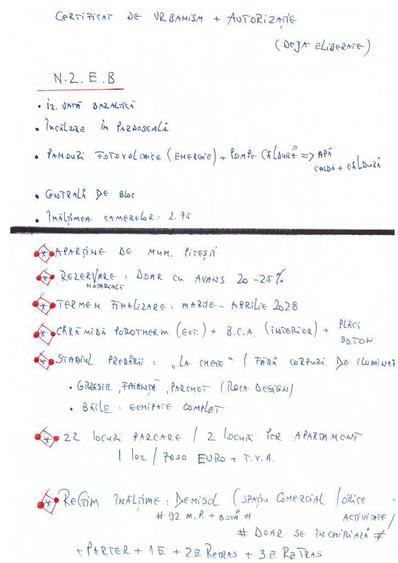 CERTIFICAT DE URBANISM + AUTORIZAȚIE
(DEJA ELIBERATE)
N.Z.E.B
• IZ. VATĂ BAZALTICĂ
• ÎNCĂLZIRE ÎN PARDOSEALĂ
• PANOURI FOTOVOLTAICE (ENERGIE) + POMPE CĂLDURĂ => APĂ
CALDĂ + CĂLDURĂ
• CENTRALĂ DE BLOC
• ÎNĂLȚIMEA CAMERELOR: 2.75
* APARȚINE DE MUN. PITEȘTI
* REZERVARE: DOAR CU AVANS 20-25%
NOTARIALĂ
* TERMEN FINALIZARE: MARTIE - APRILIE 2028
* CĂRĂMIDĂ POROTHERM (EXT.) + B.C.A. (INTERIOR) + PLĂCI
BETON
* STADIUL PREDĂRII: „LA CHEIE" / FĂRĂ CORPURI DE ILUMINAT
• GRESIE, FAIANȚĂ, PARCHET (ROCA DESIGN)
• BĂILE: ECHIPATE COMPLET
* 22 LOCURI PARCARE / 2 LOCURI PER APARTAMENT
1 LOC / 7000 EURO + T.V.A.
* REGIM ÎNĂLȚIME: DEMISOL (SPAȚIU COMERCIAL / ORICE
# 92 M.P. + BOXĂ # ACTIVITATE/
# DOAR SE ÎNCHIRIAZĂ #
+ PARTER + 1E + 2E RETRAS + 3E RETRAS